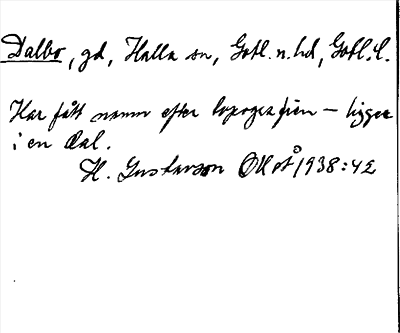 Dalbo, gd, Halla sn, Gotl. n. hd, Gotl. l.
Har fått namn efter topografien – ligger
i en dal.
H. Gustavson OUoÅ 1938:42